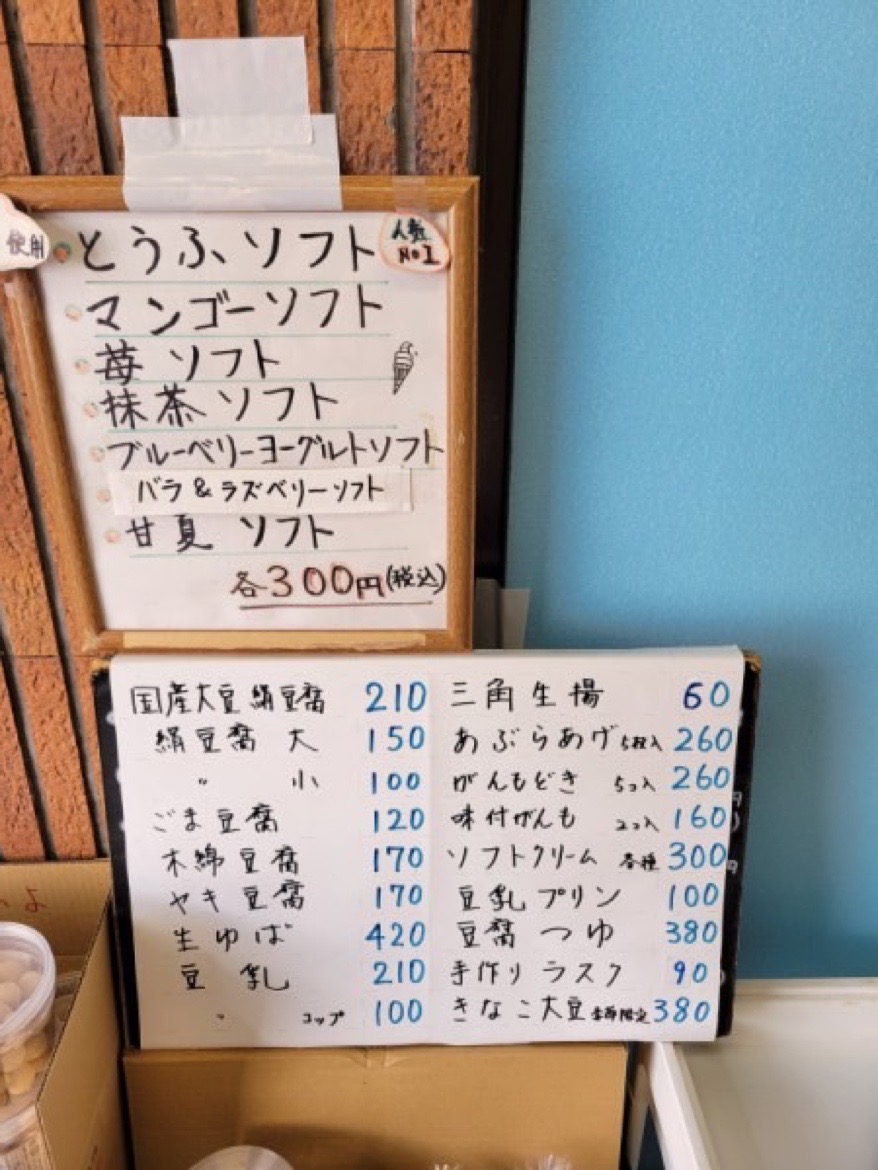 使用
とうふソフト
人気
No1
マンゴーソフト
苺ソフト
抹茶ソフト
ブルーベリーヨーグルトソフト
バラ&ラズベリーソフト
甘夏ソフト
各300円(税込)
国産大豆絹豆腐 210
絹豆腐 大 150
〃 小 100
ごま豆腐 120
木綿豆腐 170
ヤキ豆腐 170
生ゆば 420
豆乳 210
〃 コップ 100
三角生揚 60
あぶらあげ 5枚入 260
がんもどき 5コ入 260
味付がんも 2コ入 160
ソフトクリーム 各種 300
豆乳プリン 100
豆腐つゆ 380
手作りラスク 90
きなこ大豆 季節限定 380